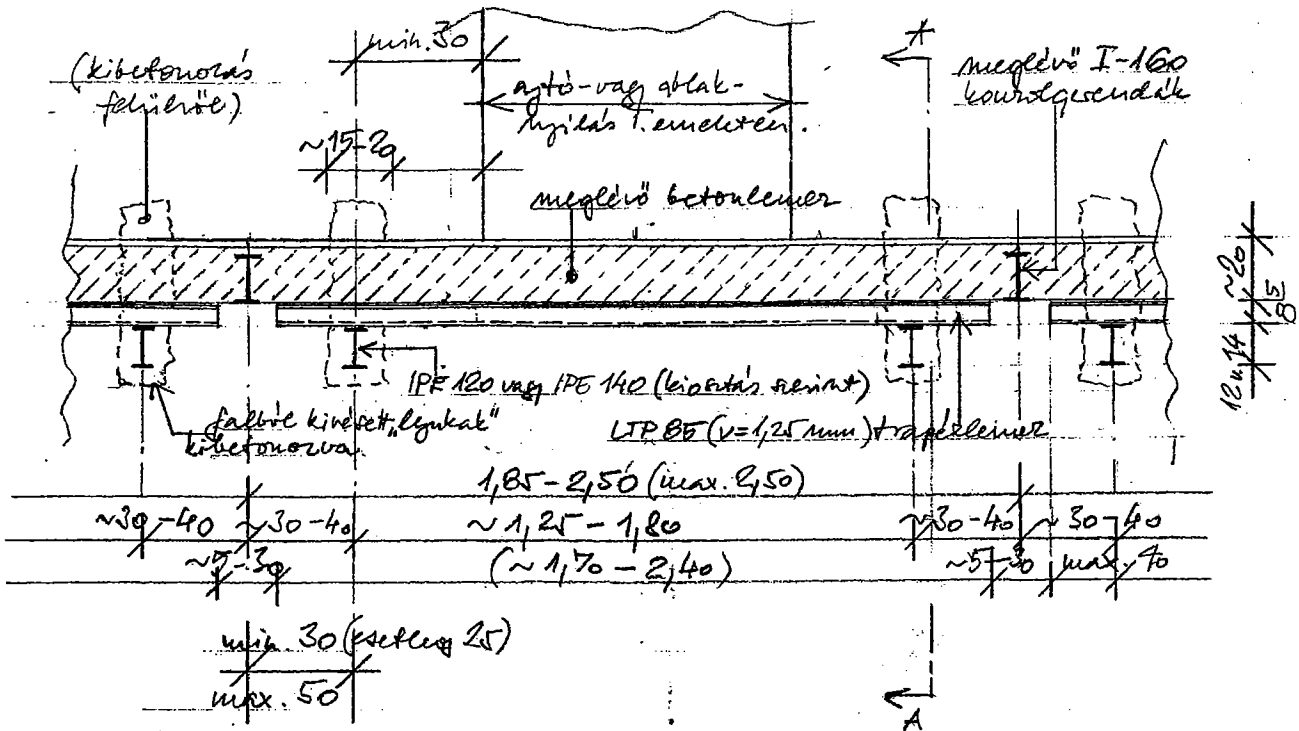 min. 30
A
(kibetonozás
felülről)
ajtó- vagy ablak-
nyílás I. emeleten.
meglévő I-160
konzolgerendák
~15-20
meglévő betonlemez
~20
5
8
12 v. 14
IPE 120 vagy IPE 140 (kiosztás szerint)
falból kivésett „lyukak"
kibetonozva.
LTP 85 (v=1,25 mm) trapézlemez
1,85 - 2,50 (max. 2,50)
~30-40 ~30-40 ~1,25 - 1,80 ~30-40 ~30-40
~5-30 (~1,70 - 2,40) ~5-30 max. 40
min. 30 (esetleg 25)
max. 50
A